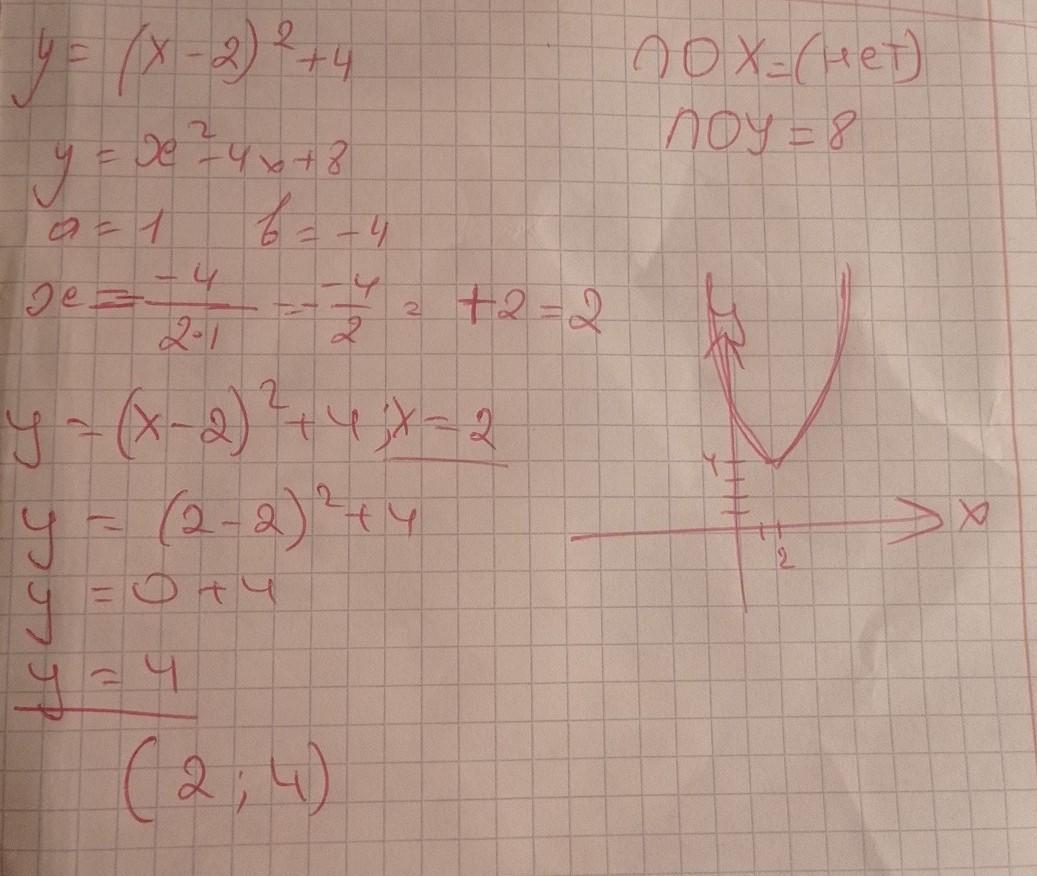 y = (x-2)²+4
y = x²-4x+8
a = 1 b = -4
x = -4/2·1 = - -4/2 = +2 = 2
y = (x-2)²+4; x = 2
y = (2-2)²+4
y = 0+4
y = 4
(2; 4)
∩OX = (нет)
∩OY = 8
y
4
x
2